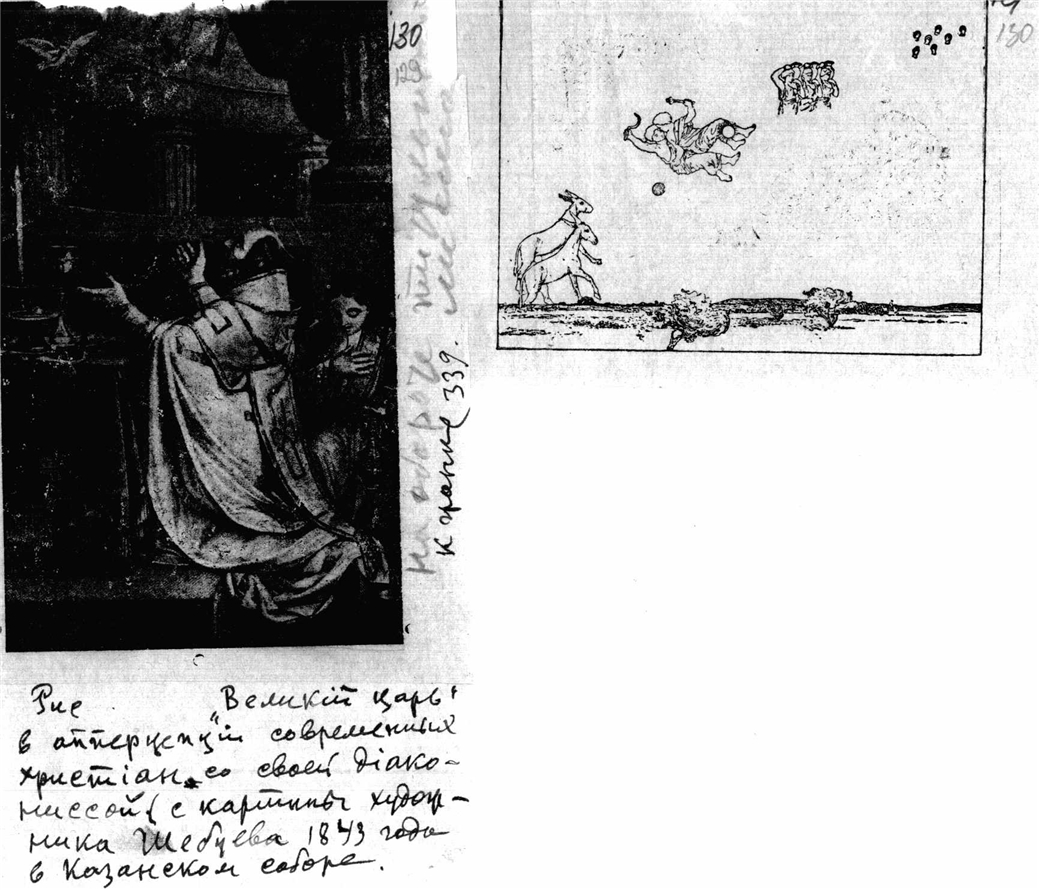 130
129
130
К гранке 339.
Рис. „Великій царь“
в апперцепціи современных
христіан со своей діако-
ниссой (с картины худож-
ника Шебуева 1843 года
в Казанском соборе.